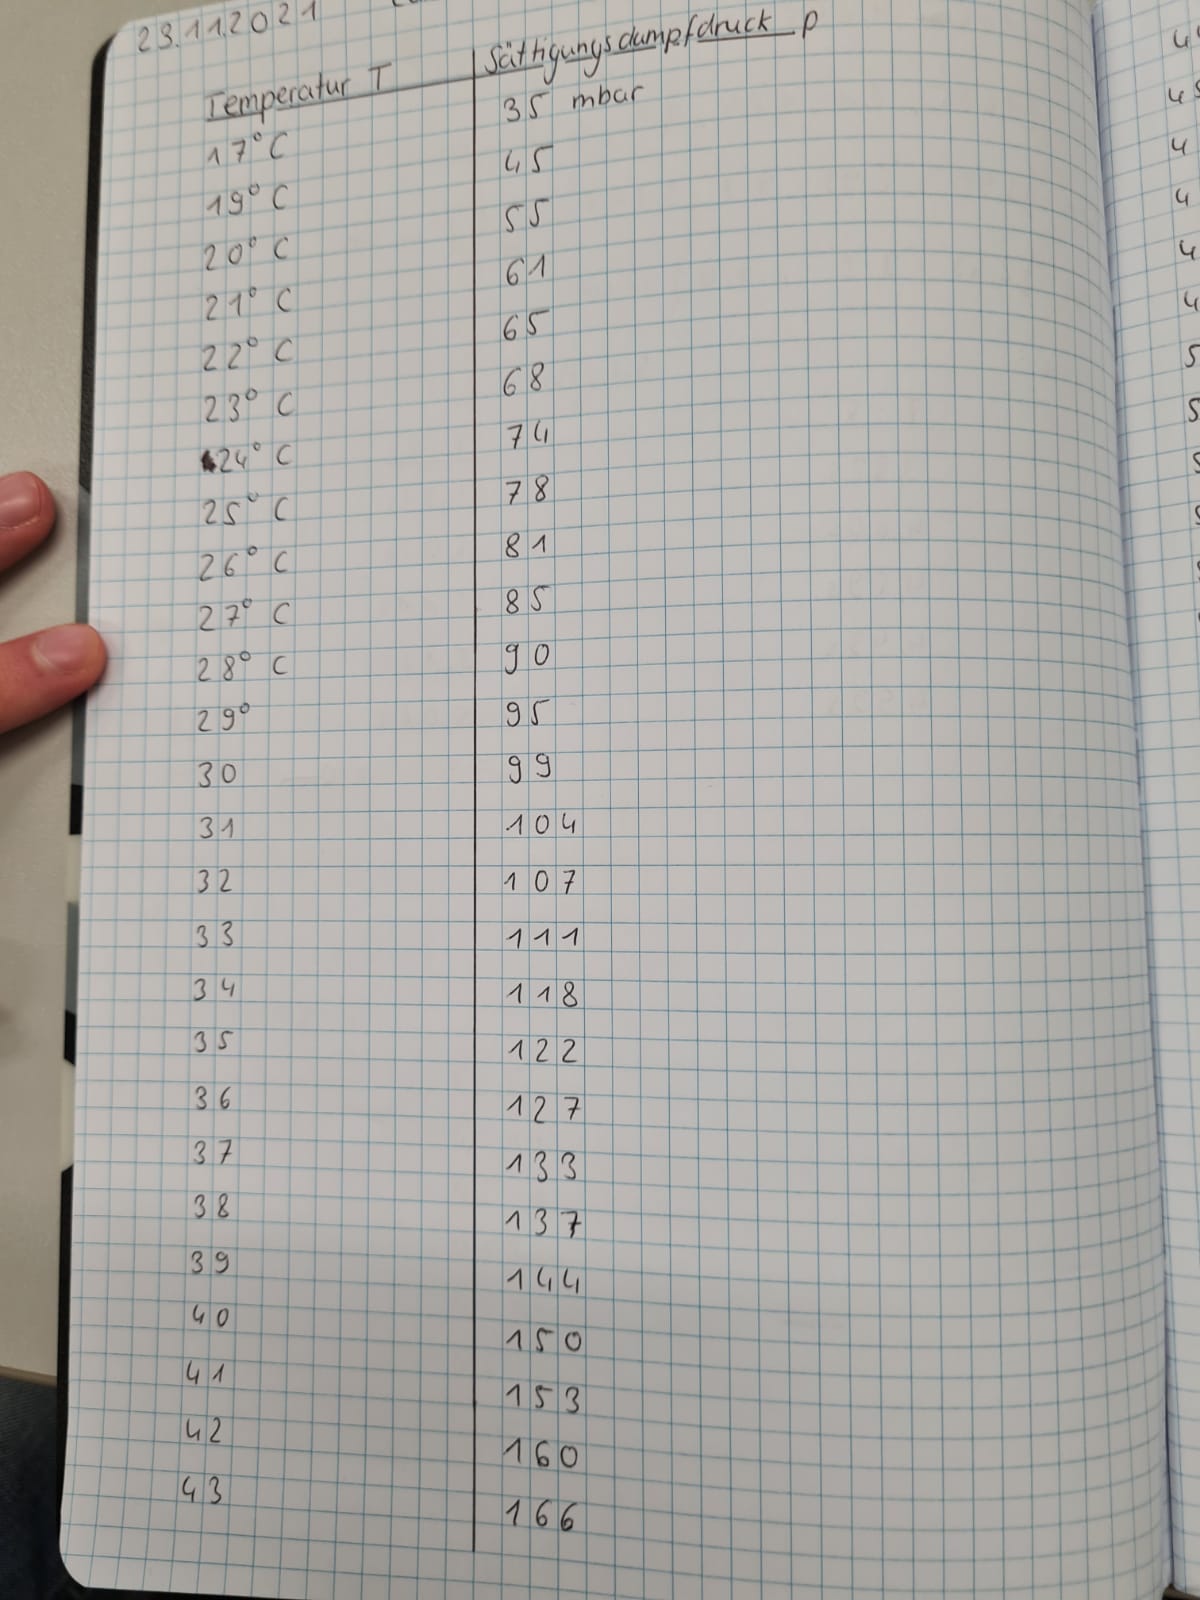 23.11.2021
Temperatur T Sättigungsdampfdruck p
17° C 35 mbar
19° C 45
20° C 55
21° C 61
22° C 65
23° C 68
24° C 74
25° C 78
26° C 81
27° C 85
28° C 90
29° 95
30 99
31 104
32 107
33 111
34 118
35 122
36 127
37 133
38 137
39 144
40 150
41 153
42 160
43 166